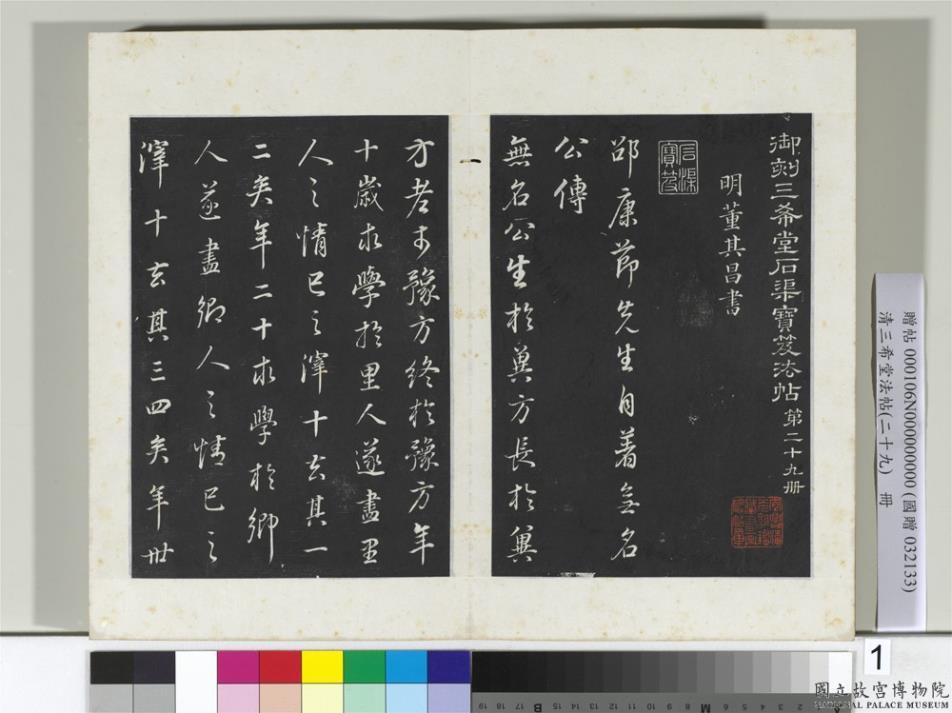 御刻三希堂石渠寶笈法帖 第二十九册
明董其昌書
石渠寶笈
邵康節先生自著無名
公傳
無名公生於冀方長於冀
方老于豫方終於豫方年
十歲求學於里人遂盡里
人之情己之滓十去其一
二矣年二十求學於鄉
人遂盡鄉人之情己之
滓十去其三四矣年卅
贈帖 000106N000000000 (國贈 032133)
清三希堂法帖(二十九) 冊
1
國立故宮博物院
NATIONAL PALACE MUSEUM